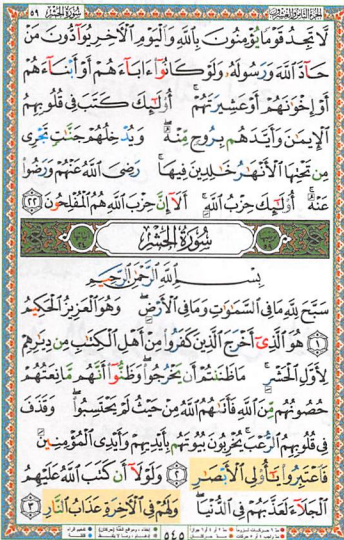 الجزء الثامن والعشرون سورة الحشر ٥٩
لَّا تَجِدُ قَوْمًا يُؤْمِنُونَ بِاللَّهِ وَالْيَوْمِ الْآخِرِ يُوَادُّونَ مَنْ
حَادَّ اللَّهَ وَرَسُولَهُ وَلَوْ كَانُوا آبَاءَهُمْ أَوْ أَبْنَاءَهُمْ
أَوْ إِخْوَانَهُمْ أَوْ عَشِيرَتَهُمْ ۚ أُولَٰئِكَ كَتَبَ فِي قُلُوبِهِمُ
الْإِيمَانَ وَأَيَّدَهُم بِرُوحٍ مِّنْهُ ۖ وَيُدْخِلُهُمْ جَنَّاتٍ تَجْرِي
مِن تَحْتِهَا الْأَنْهَارُ خَالِدِينَ فِيهَا ۚ رَضِيَ اللَّهُ عَنْهُمْ وَرَضُوا
عَنْهُ ۚ أُولَٰئِكَ حِزْبُ اللَّهِ ۚ أَلَا إِنَّ حِزْبَ اللَّهِ هُمُ الْمُفْلِحُونَ ٢٢
سُورَةُ الْحَشْرِ
بِسْمِ اللَّهِ الرَّحْمَٰنِ الرَّحِيمِ
سَبَّحَ لِلَّهِ مَا فِي السَّمَاوَاتِ وَمَا فِي الْأَرْضِ ۖ وَهُوَ الْعَزِيزُ الْحَكِيمُ
١ هُوَ الَّذِي أَخْرَجَ الَّذِينَ كَفَرُوا مِنْ أَهْلِ الْكِتَابِ مِن دِيَارِهِمْ
لِأَوَّلِ الْحَشْرِ ۚ مَا ظَنَنتُمْ أَن يَخْرُجُوا ۖ وَظَنُّوا أَنَّهُم مَّانِعَتُهُمْ
حُصُونُهُم مِّنَ اللَّهِ فَأَتَاهُمُ اللَّهُ مِنْ حَيْثُ لَمْ يَحْتَسِبُوا ۖ وَقَذَفَ
فِي قُلُوبِهِمُ الرُّعْبَ ۚ يُخْرِبُونَ بُيُوتَهُم بِأَيْدِيهِمْ وَأَيْدِي الْمُؤْمِنِينَ
فَاعْتَبِرُوا يَا أُولِي الْأَبْصَارِ ٢ وَلَوْلَا أَن كَتَبَ اللَّهُ عَلَيْهِمُ
الْجَلَاءَ لَعَذَّبَهُمْ فِي الدُّنْيَا ۖ وَلَهُمْ فِي الْآخِرَةِ عَذَابُ النَّارِ ٣
٥٤٥